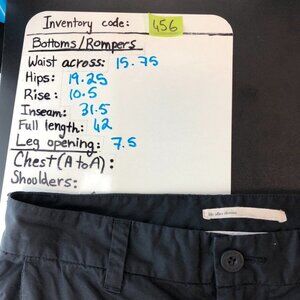 Inventory code: 456
Bottoms/Rompers
Waist across: 15.75
Hips: 19.25
Rise: 10.5
Inseam: 31.5
Full length: 42
Leg opening: 7.5
Chest (A to A):
Shoolders: